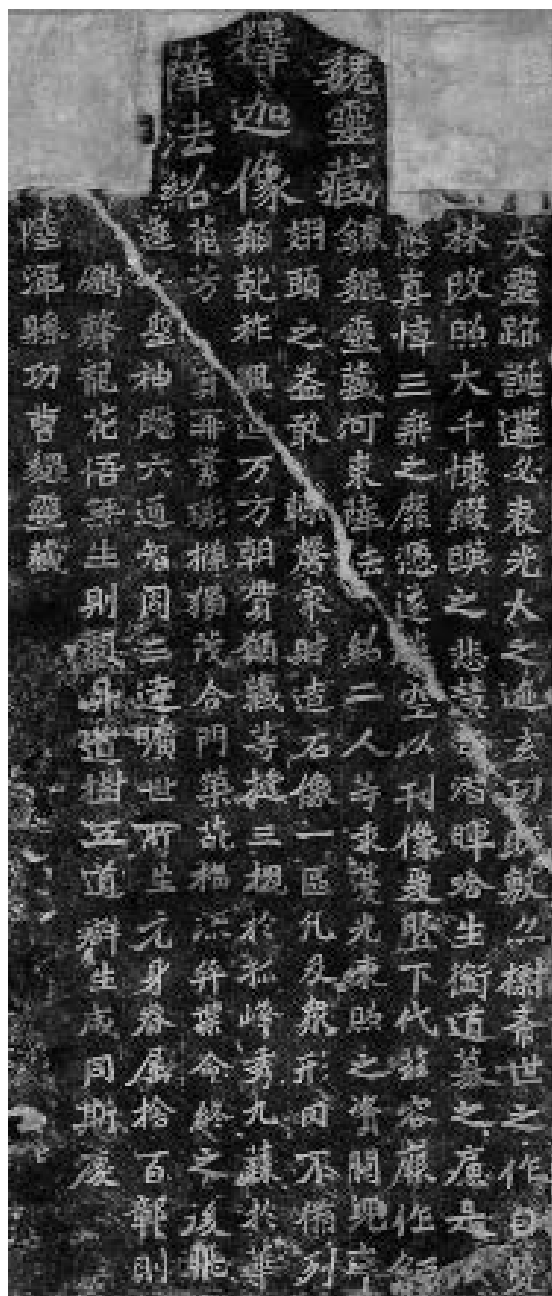 魏靈藏
釋迦像
薛法紹
夫靈跡誕遘必表光大之迹玄功既敷亦標希世之作自雙
林改照大千懷綴暎之悲慧日潛暉唅生銜道慕之痛是
應真悼三乘之靡憑遂騰空以刊像爰暨下代茲容厥作鉅
鏕魏靈藏河東薛法紹二人等求豪光東照之資闕兜率
翅頭之益敢輒磬家財造石像一區凡及眾形罔不備列
願乾祚興延万方朝貫願藏等挺三槐於孤峰秀九蕀於華
菀芳實再繁荊條獨茂合門榮葩福流弈葉命終之後飛
逢千聖神颺六通智周三達曠世所生元身眷屬捨百鄣則
鵬擊龍花悟無生則鳳昇道樹五道群生咸同斯慶
陸渾縣功曹魏靈藏